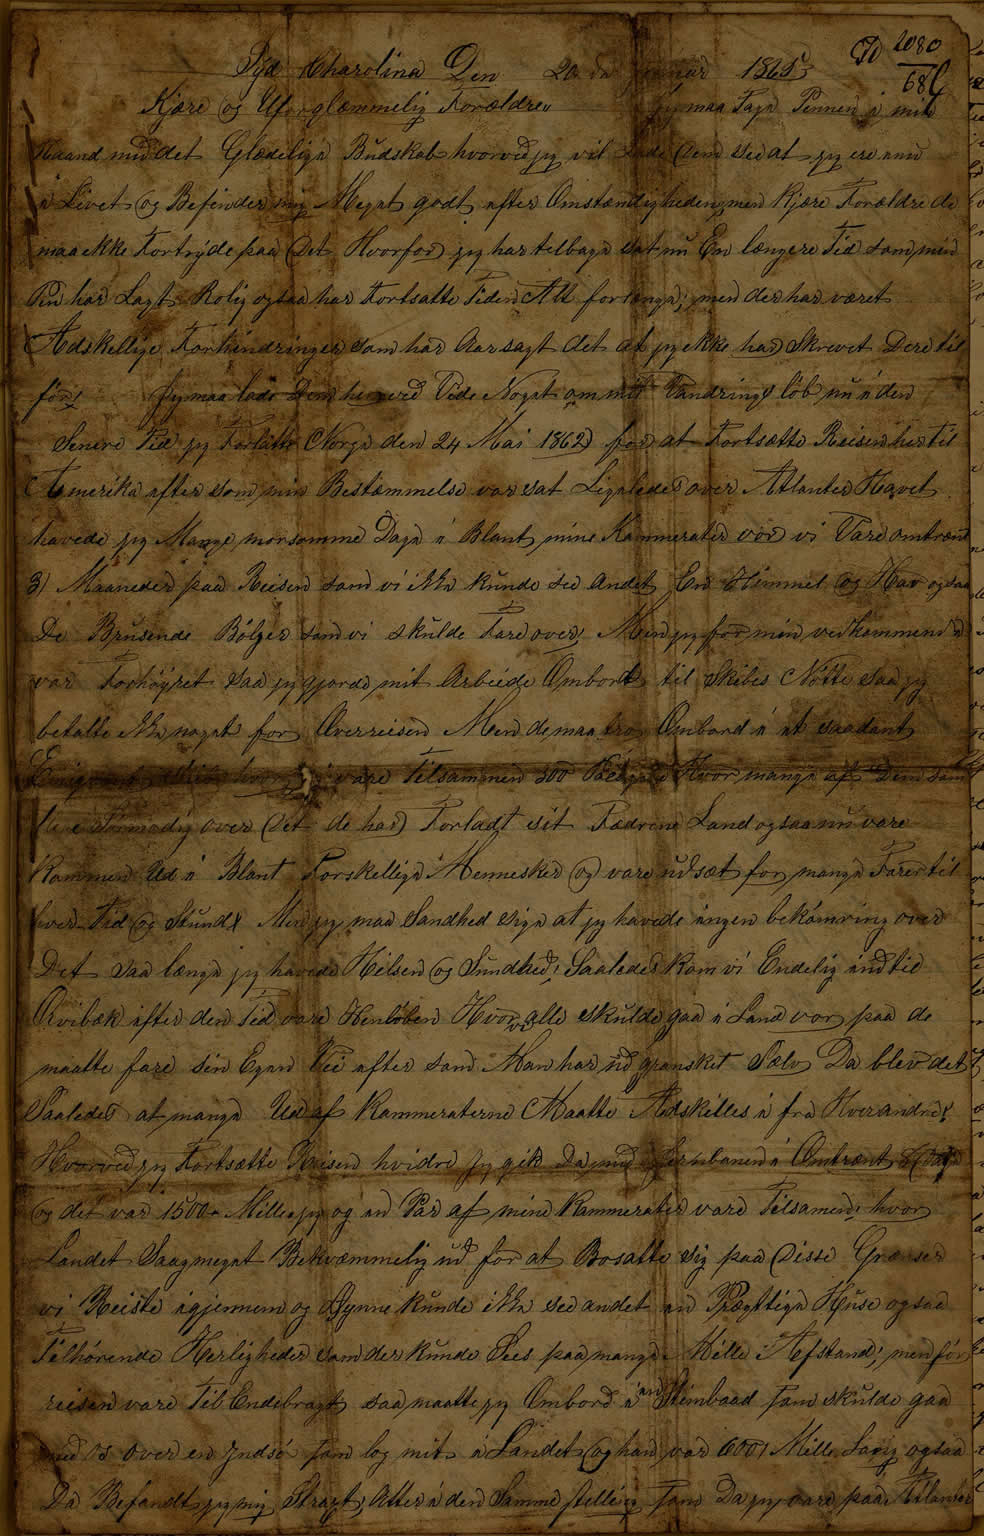 Syd Charolina Den 20 de Januar 1865
No 2080
68
Kjære og Uforglæmmelig Forældre Jeg maa Tage Pennen i min
Haand med det Glædelige Budskab hvorved jeg vil Lade Dem Ved at jeg ere ennu
i Livet og Befinder mig Meget godt efter Omstændigheden, men Kjære Forældre de
maa ekke Fortryde paa Det Hvorfor jeg har telbage sat nu En længere Tid som, min
Pen har Lagt Rolig ogsaa har Fortsatte Tiden Alt forlænge; men der har været
Adskellige Forhindringer som har Aarsagt det at jeg ekke had Skrevet Dere til
før! Jeg maa lade Dem herved Vede Noget om mit Vandrings løb nu i den
Senere Tid jeg Forlatte Norge den 24 Mai 1862 for at Fortsætte Reisen her til
Amerika efter som min Bestemmelse var sat Ligeledes over Atlanter Havet
havede jeg Mange morsomme Dage i Blant mine Kammerater vor vi Vare omtrænt
3) Maaneder paa Reisen som vi ikke kunde see andet En Himmel og Hav ogsaa
De Brusende Bølger som vi skulde Fare over! Men jeg for min vedkommende
var Forhøyret saa jeg gjorde mit Arbeide Ombord til Skibes Nøtte saa jeg
betalte ikke noget for Overreisen Men de maa tro Ombord i et saadant
vare Tilsammen 300 Hvor mange af Dem som
over Det de had Forladt sit Fædrene Land ogsaa nu vare
kommen Ud i Blant Forskellige Mennesker og vare udsæt for mange Farer til
hver Tid og Stund! Men jeg maa Sandhed sige at jeg havede ingen bekømring over
Det saa længe jeg havede Helsen og Sundhed; Saaledes kom vi Endelig ind tid
Qvibæk efter den Tid vare Henløben Hvor vi alle skulde gaa i Land vor paa de
maatte fare sin Egen Vei efter som Man har ud gransket Selv Da blev det
Saaledes at mange Ud af Kammeraterne Maatte Adskilles i fra Hverandre!
Hvorved jeg Fortsætte Reisen hvidre Jeg gik Da med Jernbanen i Omtrænt
og det var 1500 Mille jeg og en Par af mine Kammerater vare Tilsamen; hvor
Landet Saag meget Bekvæmmelig ud for at Bosatte sig paa Disse Grænser
vi Reiste igjennem og Øynne kunde ikke see andet en Prægttige Huse ogsaa
Tilhørende Herligheder som der kunde Sees paa mange Mille i Afstand; men før
reisen vare Til Endebragt saa maatte jeg Ombord i en Stimbaad som skulde gaa
med os over en Jndsø som log mit i Landet og han var 600 Mille Lang ogsaa
Da Befandt jeg mig Stragt Atter i den Samme stelling som Da jeg vare paa Atlanter